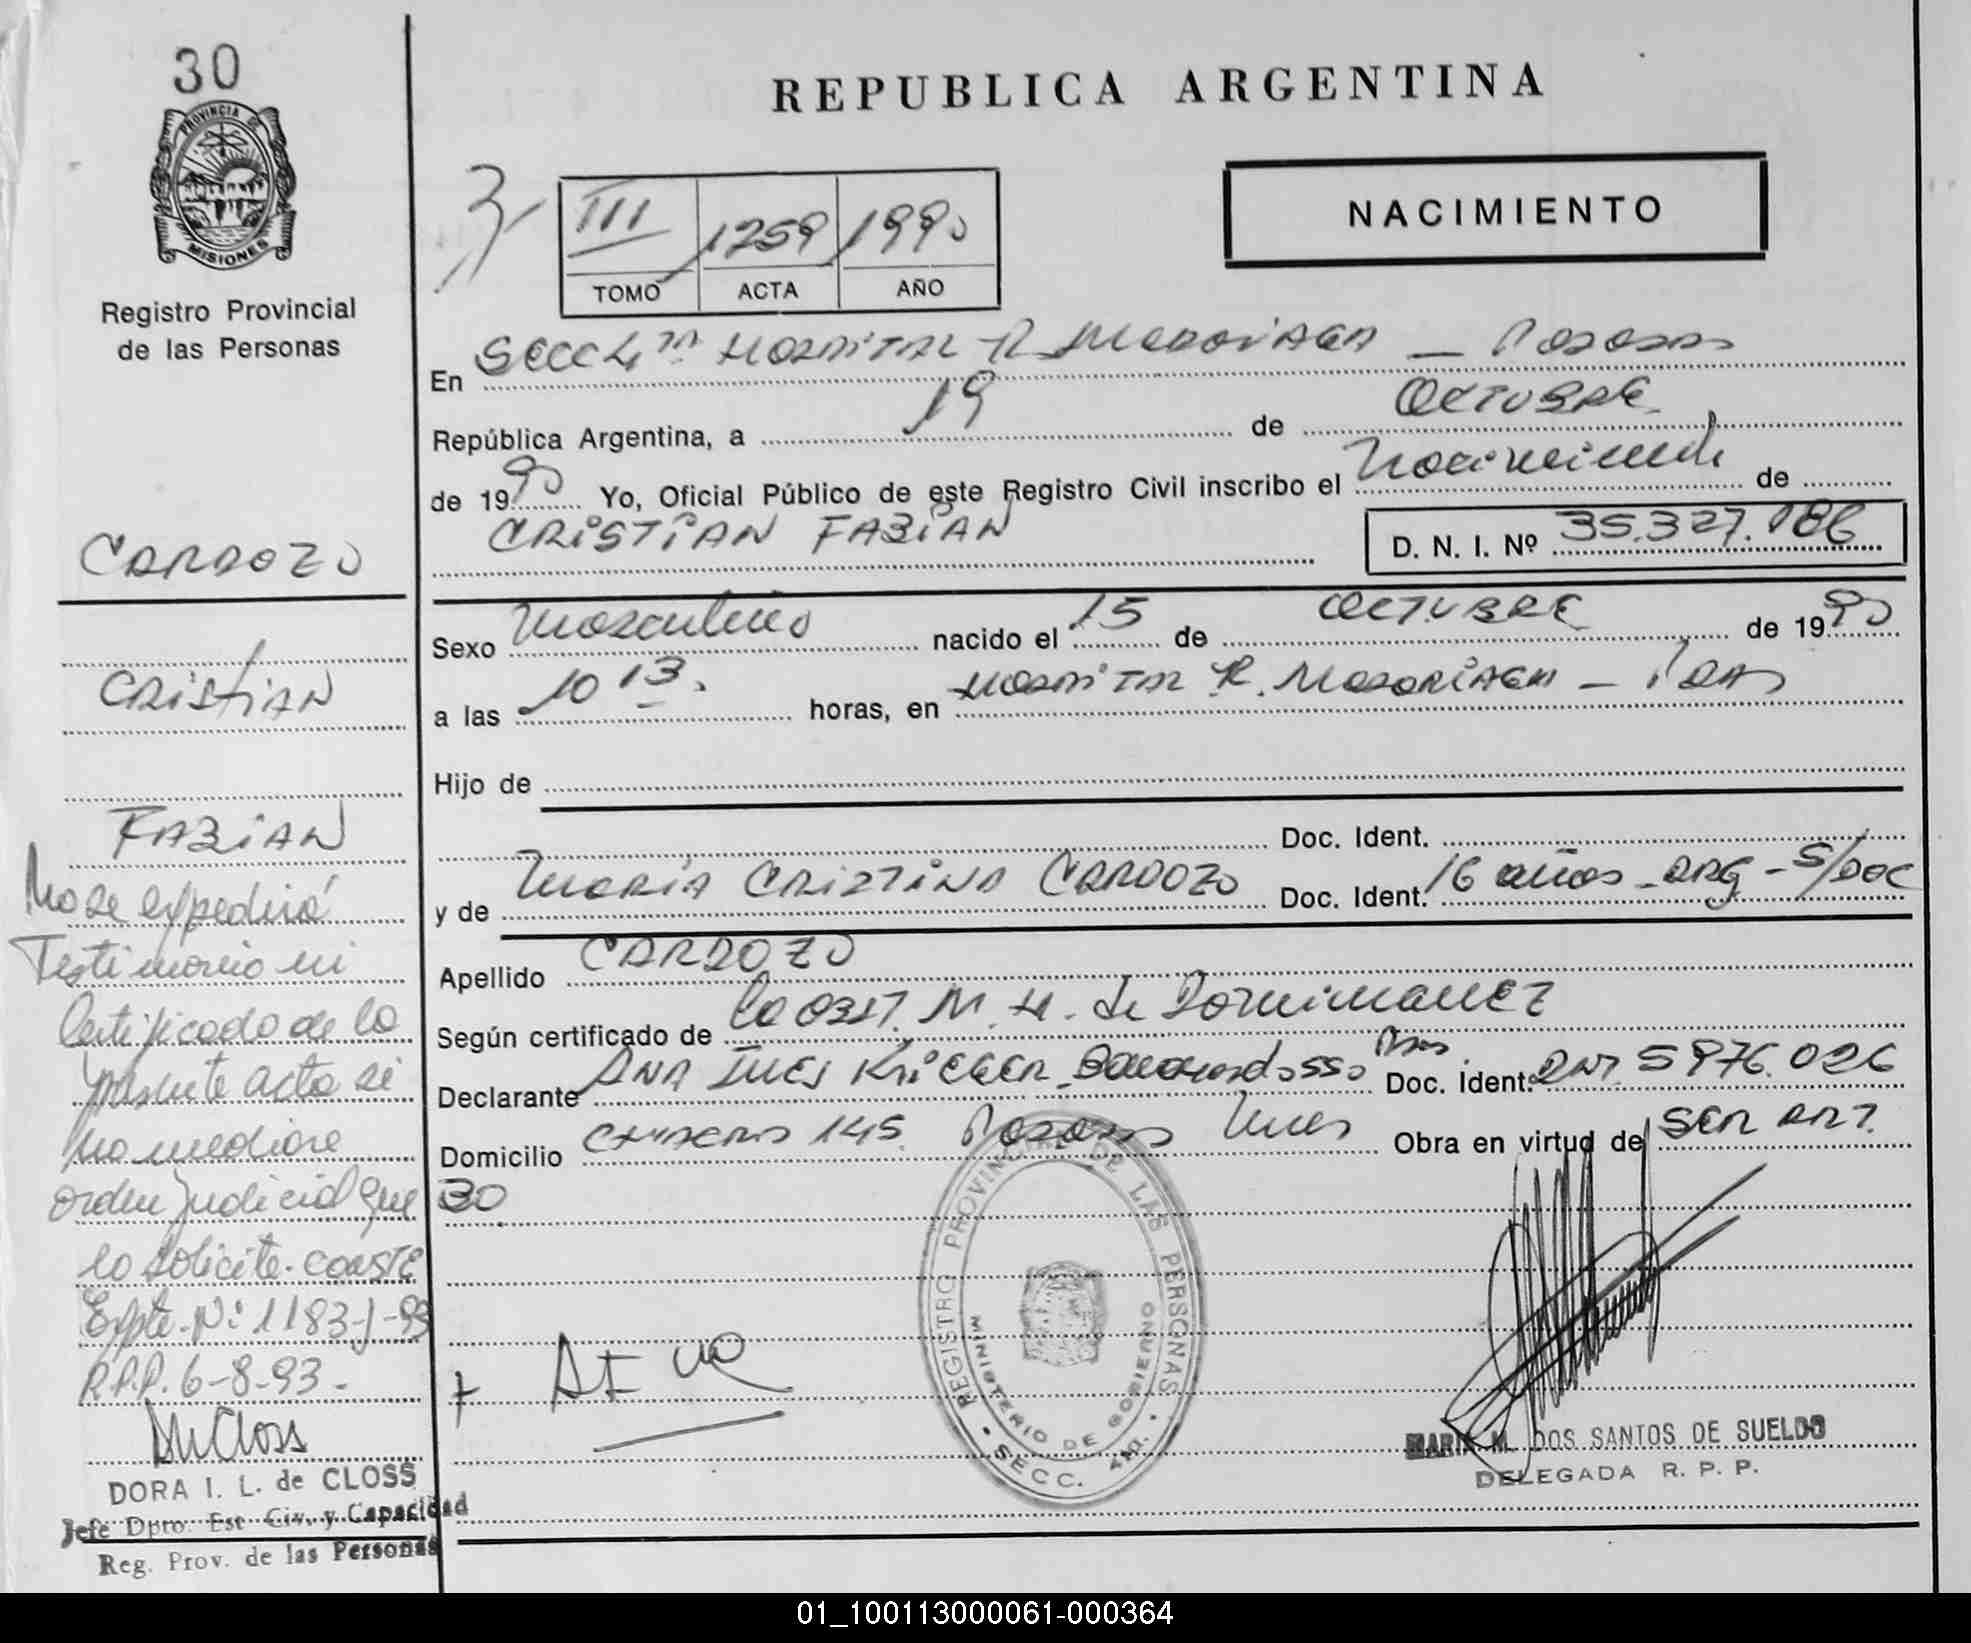 30
PROVINCIA DE
MISIONES
Registro Provincial
de las Personas
CARDOZO
CRistiAN
FABIAN
No se expedirá
Testimonio ni
Certificado de la
presente acta si
no mediare
orden judicial que
lo solicite. CONSTE
Expte. Nº 1183-J-93
R.P.P. 6-8-93.-
DORA I. L. de CLOSS
Jefe Dpto. Est Civ. y Capacidad
Reg. Prov. de las Personas
REPUBLICA ARGENTINA
NACIMIENTO
III 1259 1990
TOMO ACTA AÑO
En SECC 4ta HOSPITAL R MADARIAGA — POSADAS
República Argentina, a 19 de OCTUBRE
de 1990 Yo, Oficial Público de este Registro Civil inscribo el Nacimiento de
CRISTIAN FABIAN
D. N. I. Nº 35.327.186
Sexo Masculino nacido el 15 de OCTUBRE de 1990
a las 10 13. horas, en HOSPITAL R. MADARIAGA — Pdas
Hijo de
Doc. Ident.
y de MARÍA CRISTINA CARDOZO Doc. Ident. 16 años - ARG - S/DOC
Apellido CARDOZO
Según certificado de la OBST. M. H. de
Declarante ANA INES KRIEGER Doc. Ident. DNI 5976.026
Domicilio 145 Posadas Mnes Obra en virtud de SER ART.
30
REGISTRO PROVINCIAL DE LAS PERSONAS
MINISTERIO DE GOBIERNO
SECC. 4ta.
MARIA M. DOS SANTOS DE SUELDO
DELEGADA R. P. P.
01_100113000061-000364